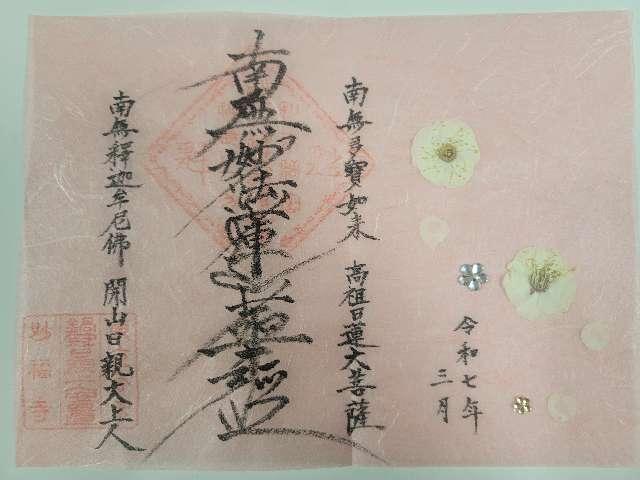 令和七年
三月
南無多寳如来 高祖日蓮大菩薩
南無妙法蓮華経
南無釋迦牟尼佛 開山日親大上人
妙福寺